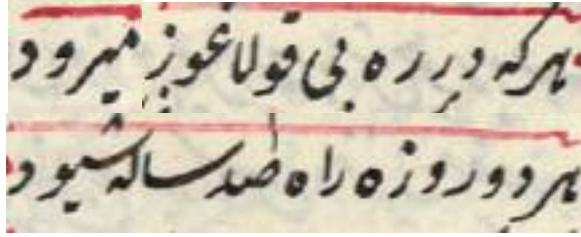 هرکه در ره بی قولاغوز میرود
هر دو روزه راه صد ساله شود